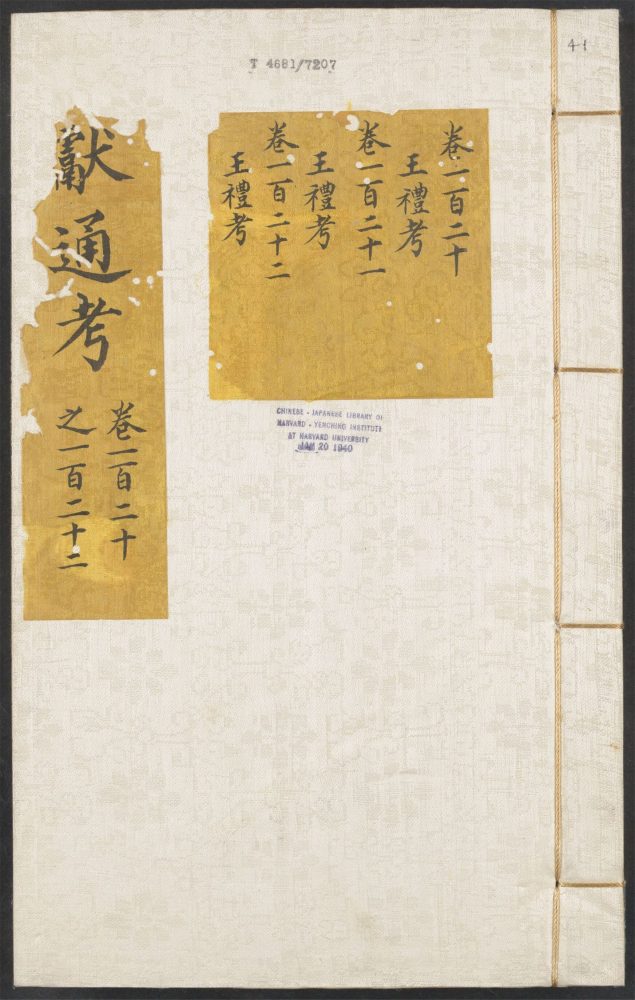 T 4681/7207
41
卷一百二十
王禮考
卷一百二十一
王禮考
卷一百二十二
王禮考
獻通考
卷一百二十
之一百二十二
CHINESE - JAPANESE LIBRARY OF
HARVARD - YENCHING INSTITUTE
AT HARVARD UNIVERSITY
JAN 20 1940